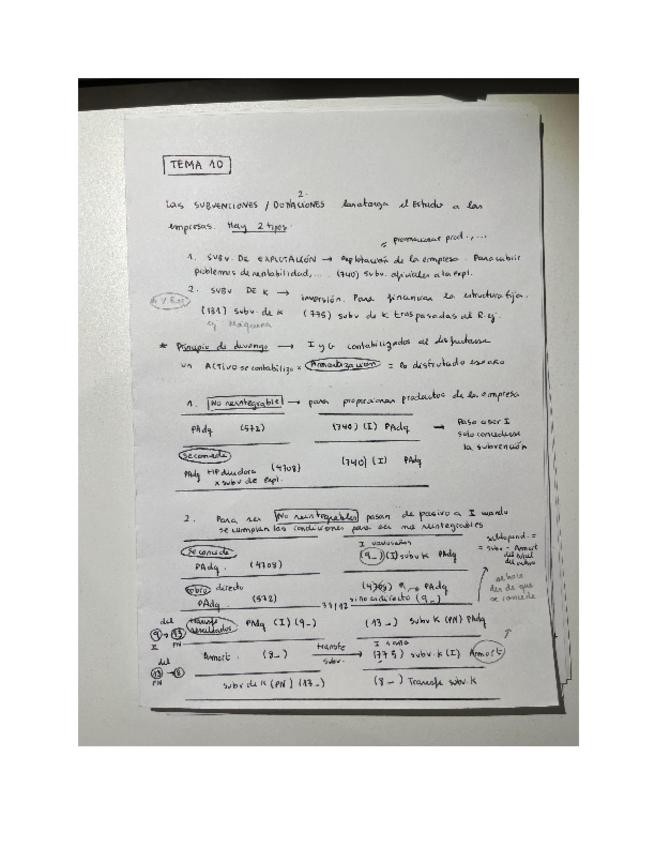 TEMA 10
2.
Las SUBVENCIONES / DONACIONES las otorga el Estado a las
empresas. Hay 2 tipos.
promocionar prod., ...
1. SUBV. DE EXPLOTACIÓN → explotación de la empresa. Para cubrir
problemas de rentabilidad, ... (740) Subv. oficiales a la expl.
2. SUBV DE K → inversión. Para financiar la estructura fija.
(131) subv. de K (775) subv de K traspasadas al R. ej.
ej Máquina
* Principio de devengo → I y G contabilizados al disfrutarse
un ACTIVO se contabiliza x Amortización = lo disfrutado
1. No reintegrable → para promocionar productos de la empresa
PAdq (572) (740) (I) PAdq → Pasa a ser I
solo concederse
la subvención
Se concede
PAdq HP deudora (4708) (740) (I) PAdq
x subv de expl.
2. Para ser No reintegrables pasan de pasivo a I cuando
se cumplan las condiciones para ser no reintegrables
Se concede (9_) (I) subv K PAdq
PAdq. (4708)
= subv - Amort
del total
del activo
cobro directo (4708) 9_ PAdq
PAdq. (572) si no es directo (9_)
31/12
se concede
del 9 → 13 transfe resultados PAdq (I) (9_) (13_) subv K (PN) PAdq
I PN
Amort. (8_) transfe subv. → (775) subv. K (I) Amort
del 13 → 8
PN
subv de K (PN) (13_) (8_) Transfe subv. K